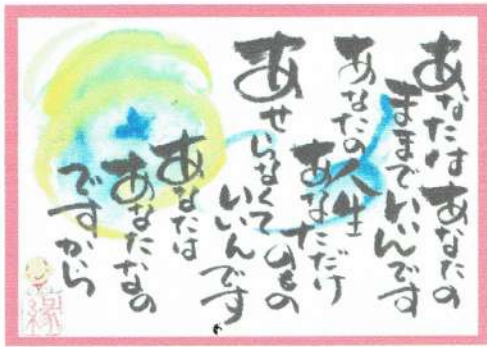 あなたはあなたの
ままでいいんです
あなたの人生
あなただけ
のもの
あせらなくて
いいんです
あなたは
あなたなの
ですから
縁